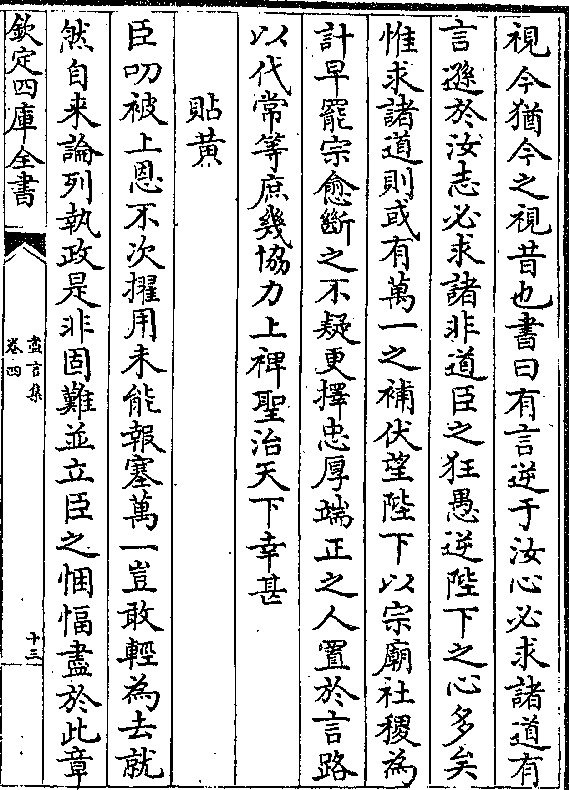 視今猶今之視昔也書曰有言逆于汝心必求諸道有
言遜於汝志必求諸非道臣之狂愚逆陛下之心多矣
惟求諸道則或有萬一之補伏望陛下以宗廟社稷為
計早罷宗愈斷之不疑更擇忠厚端正之人置於言路
以代常等庶幾協力上裨聖治天下幸甚
貼黄
臣叨被上恩不次擢用未能報塞萬一豈敢輕為去就
然自来論列執政是非固難並立臣之悃愊盡於此章
欽定四庫全書
盡言集
卷四
十三